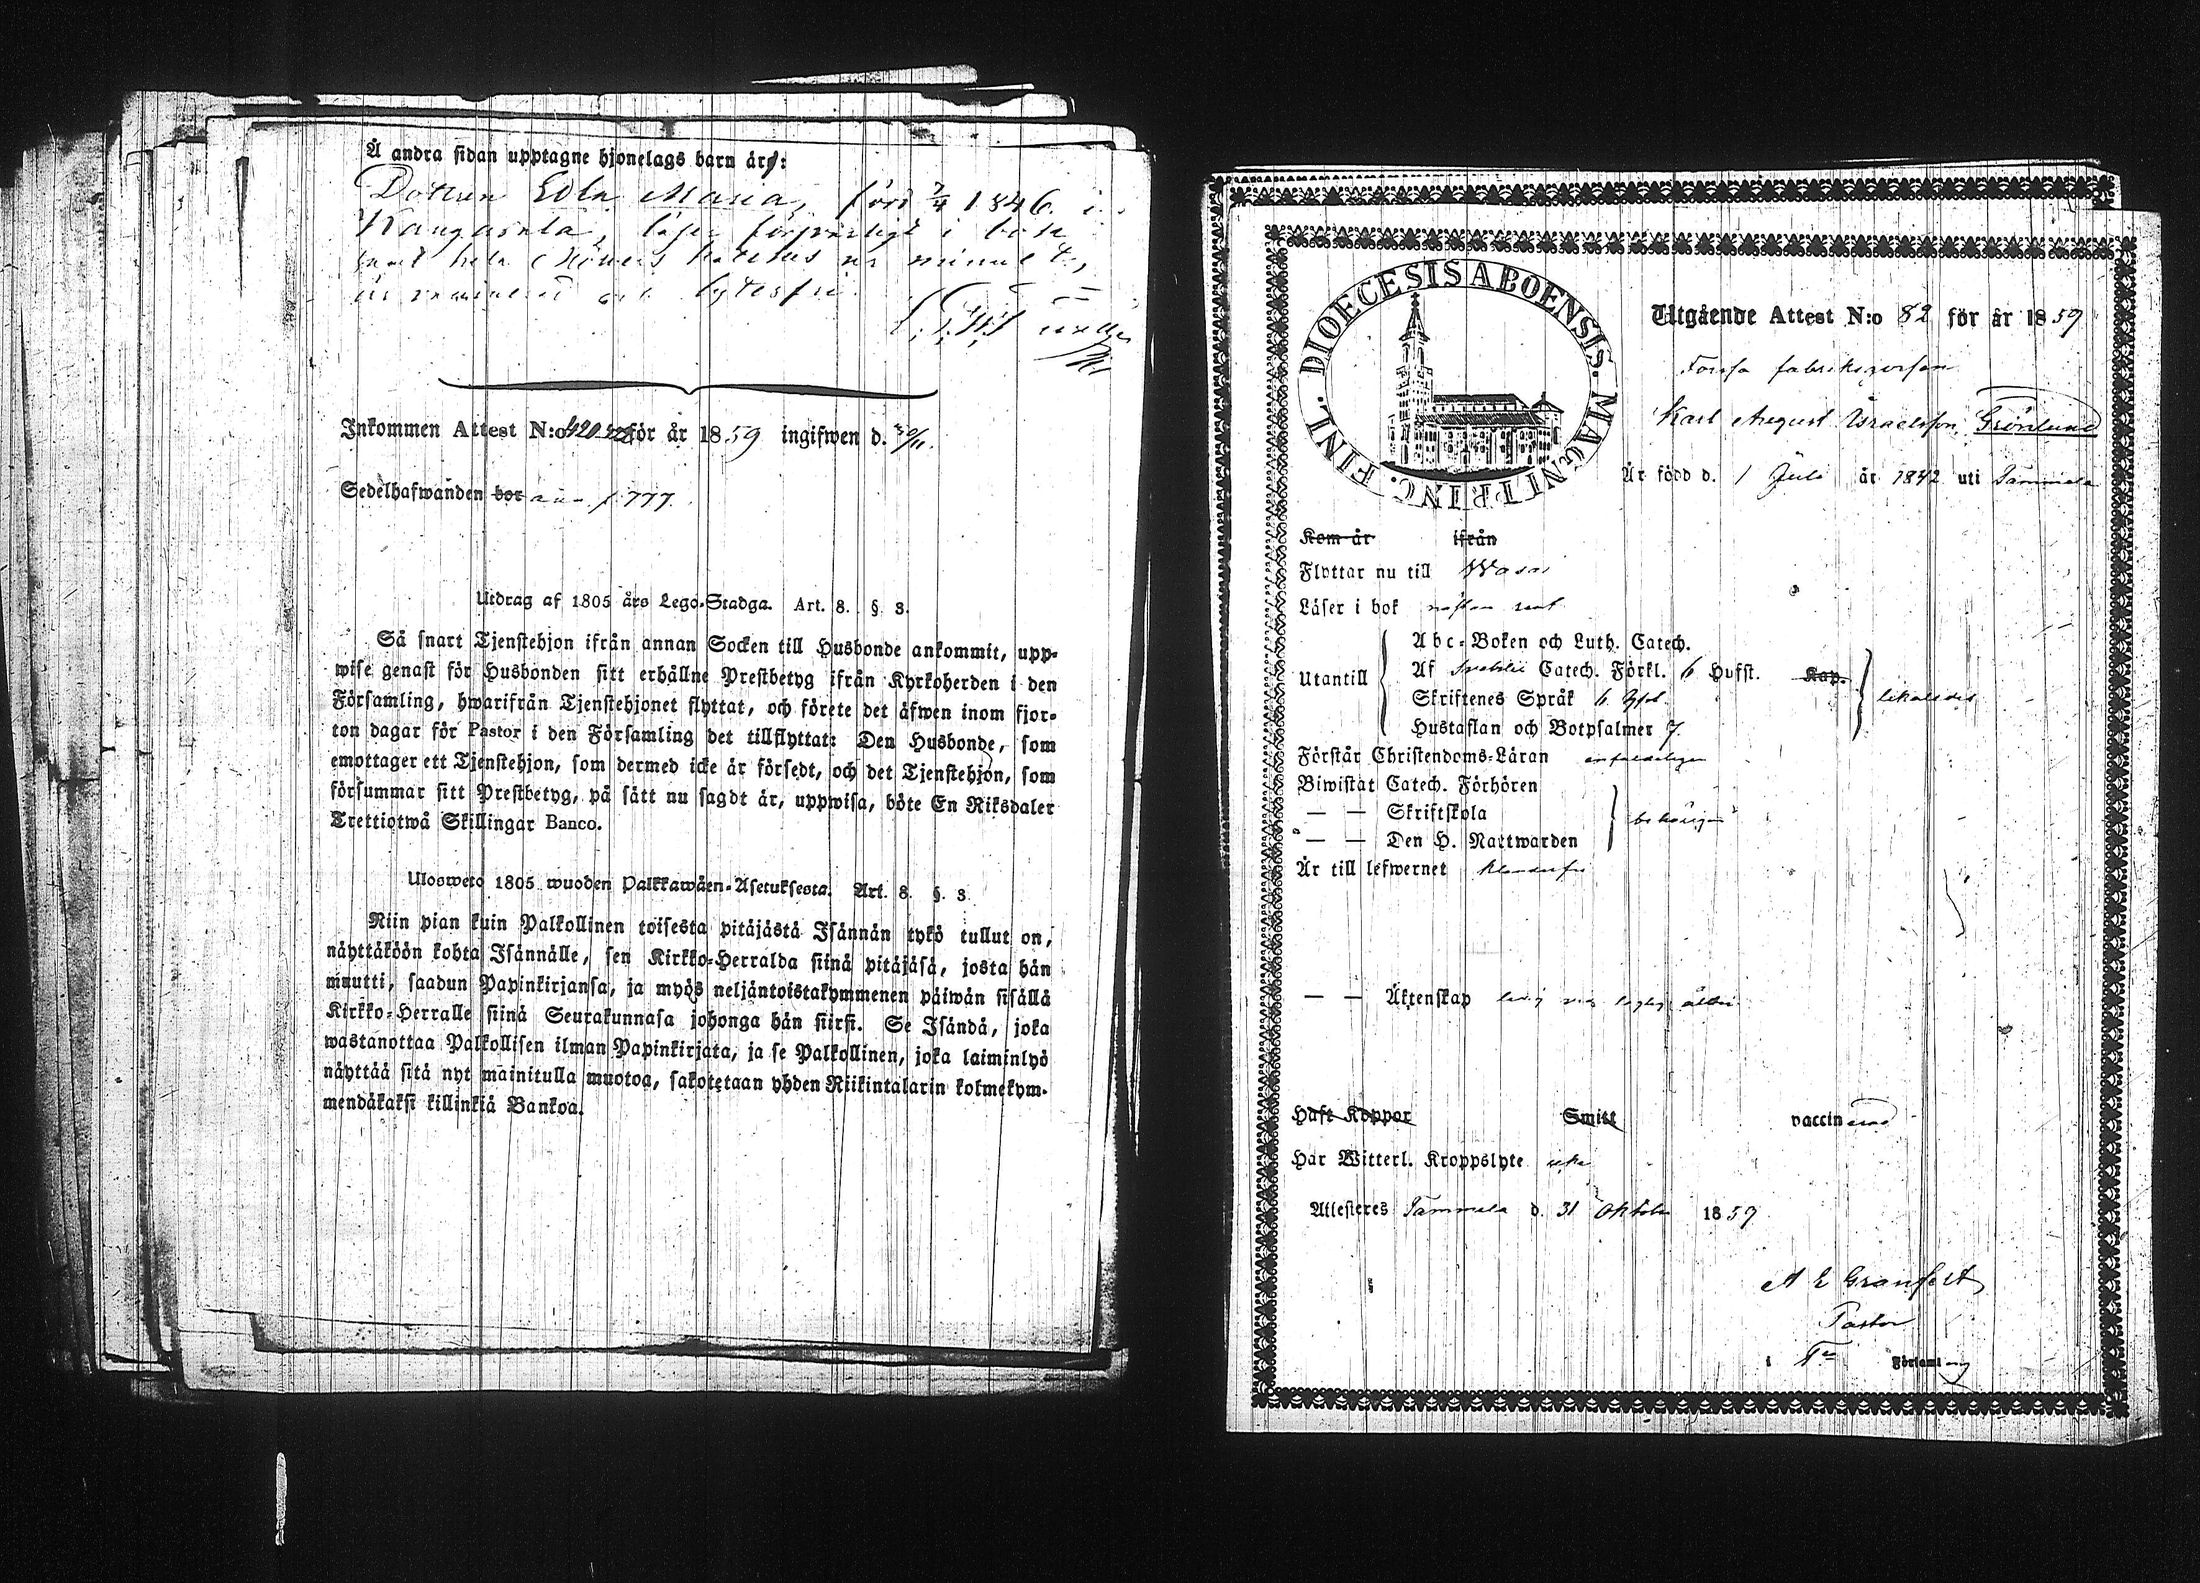 Å andra sidan upptagne hjonelags barn äro:
Dottren Edla Maria, född 7/4 1846 i
Kangasala, läser försvarligt i bok
samt hela Katekes ur minnet,
är vaccinerad och lytesfri
Inkommen Attest N:o för år 1859 ingifwen d. 30/11.
Sedelhafwanden bor p. 777.
Utdrag af 1805 års Lego-Stadga. Art. 8. §. 3.
Så snart Tjenstehjon ifrån annan Socken till Husbonde ankommit, upp-
wise genast för Husbonden sitt erhållne Prestbetyg ifrån Kyrkoherden i den
Församling, hwarifrån Tjenstehjonet flyttat, och förete det äfwen inom fjor-
ton dagar för Pastor i den Församling det tillflyttat: Den Husbonde, som
emottager ett Tjenstehjon, som dermed icke är försedt, och det Tjenstehjon, som
försummar sitt Prestbetyg, på sätt nu sagdt är, uppwisa, böte En Riksdaler
Trettiotwå Skillingar Banco.
Ulosweto 1805 wuoden Palkkawäen-Asetuksesta. Art. 8. §. 3.
Niin pian kuin Palkollinen toisesta pitäjästä Isännän tykö tullut on,
näyttäköön kohta Isännälle, sen Kirkko-Herralda siinä pitäjäsä, josta hän
muutti, saadun Papinkirjansa, ja myös neljäntoistakymmenen päiwän sisällä
Kirkko-Herralle siinä Seurakunnasa johonga hän siirsi. Se Isändä, joka
wastanottaa Palkollisen ilman Papinkirjata, ja se Palkollinen, joka laiminlyö
näyttää sitä nyt mainitulla muotoa, sakotetaan yhden Riikintalarin kolmekym-
mendäkaksi killinkiä Bankoa.
DIOECESIS ABOENSIS. MAGNI PRINC. FINL.
Utgående Attest N:o 82 för år 1859
Forssa fabriksgossen
Karl August Israelsson Grönlund
Är född d. 1 Juli år 1842 uti Tammela
Kom år ifrån
Flyttar nu till Wasa
Läser i bok nästan rent
Utantill
Abc-Boken och Luth. Catech.
Af Svebilii Catech. Förkl. 6 Hufst. Kap.
Skriftenes Språk 6
Hustaflan och Botpsalmer 7
likaledes
Förstår Christendoms-Läran enfaldeligen
Biwistat Catech. Förhören
— — Skriftskola
— — Den H. Nattwarden
behörigen
Är till lefwernet klanderfri
— — Äktenskap ledig
Haft Koppor Smitt vaccinerad
Har Witterl. Kroppslyte icke
Attesteres Tammela d. 31 Oktober 1859
A E Granfelt
Pastor
i Församling